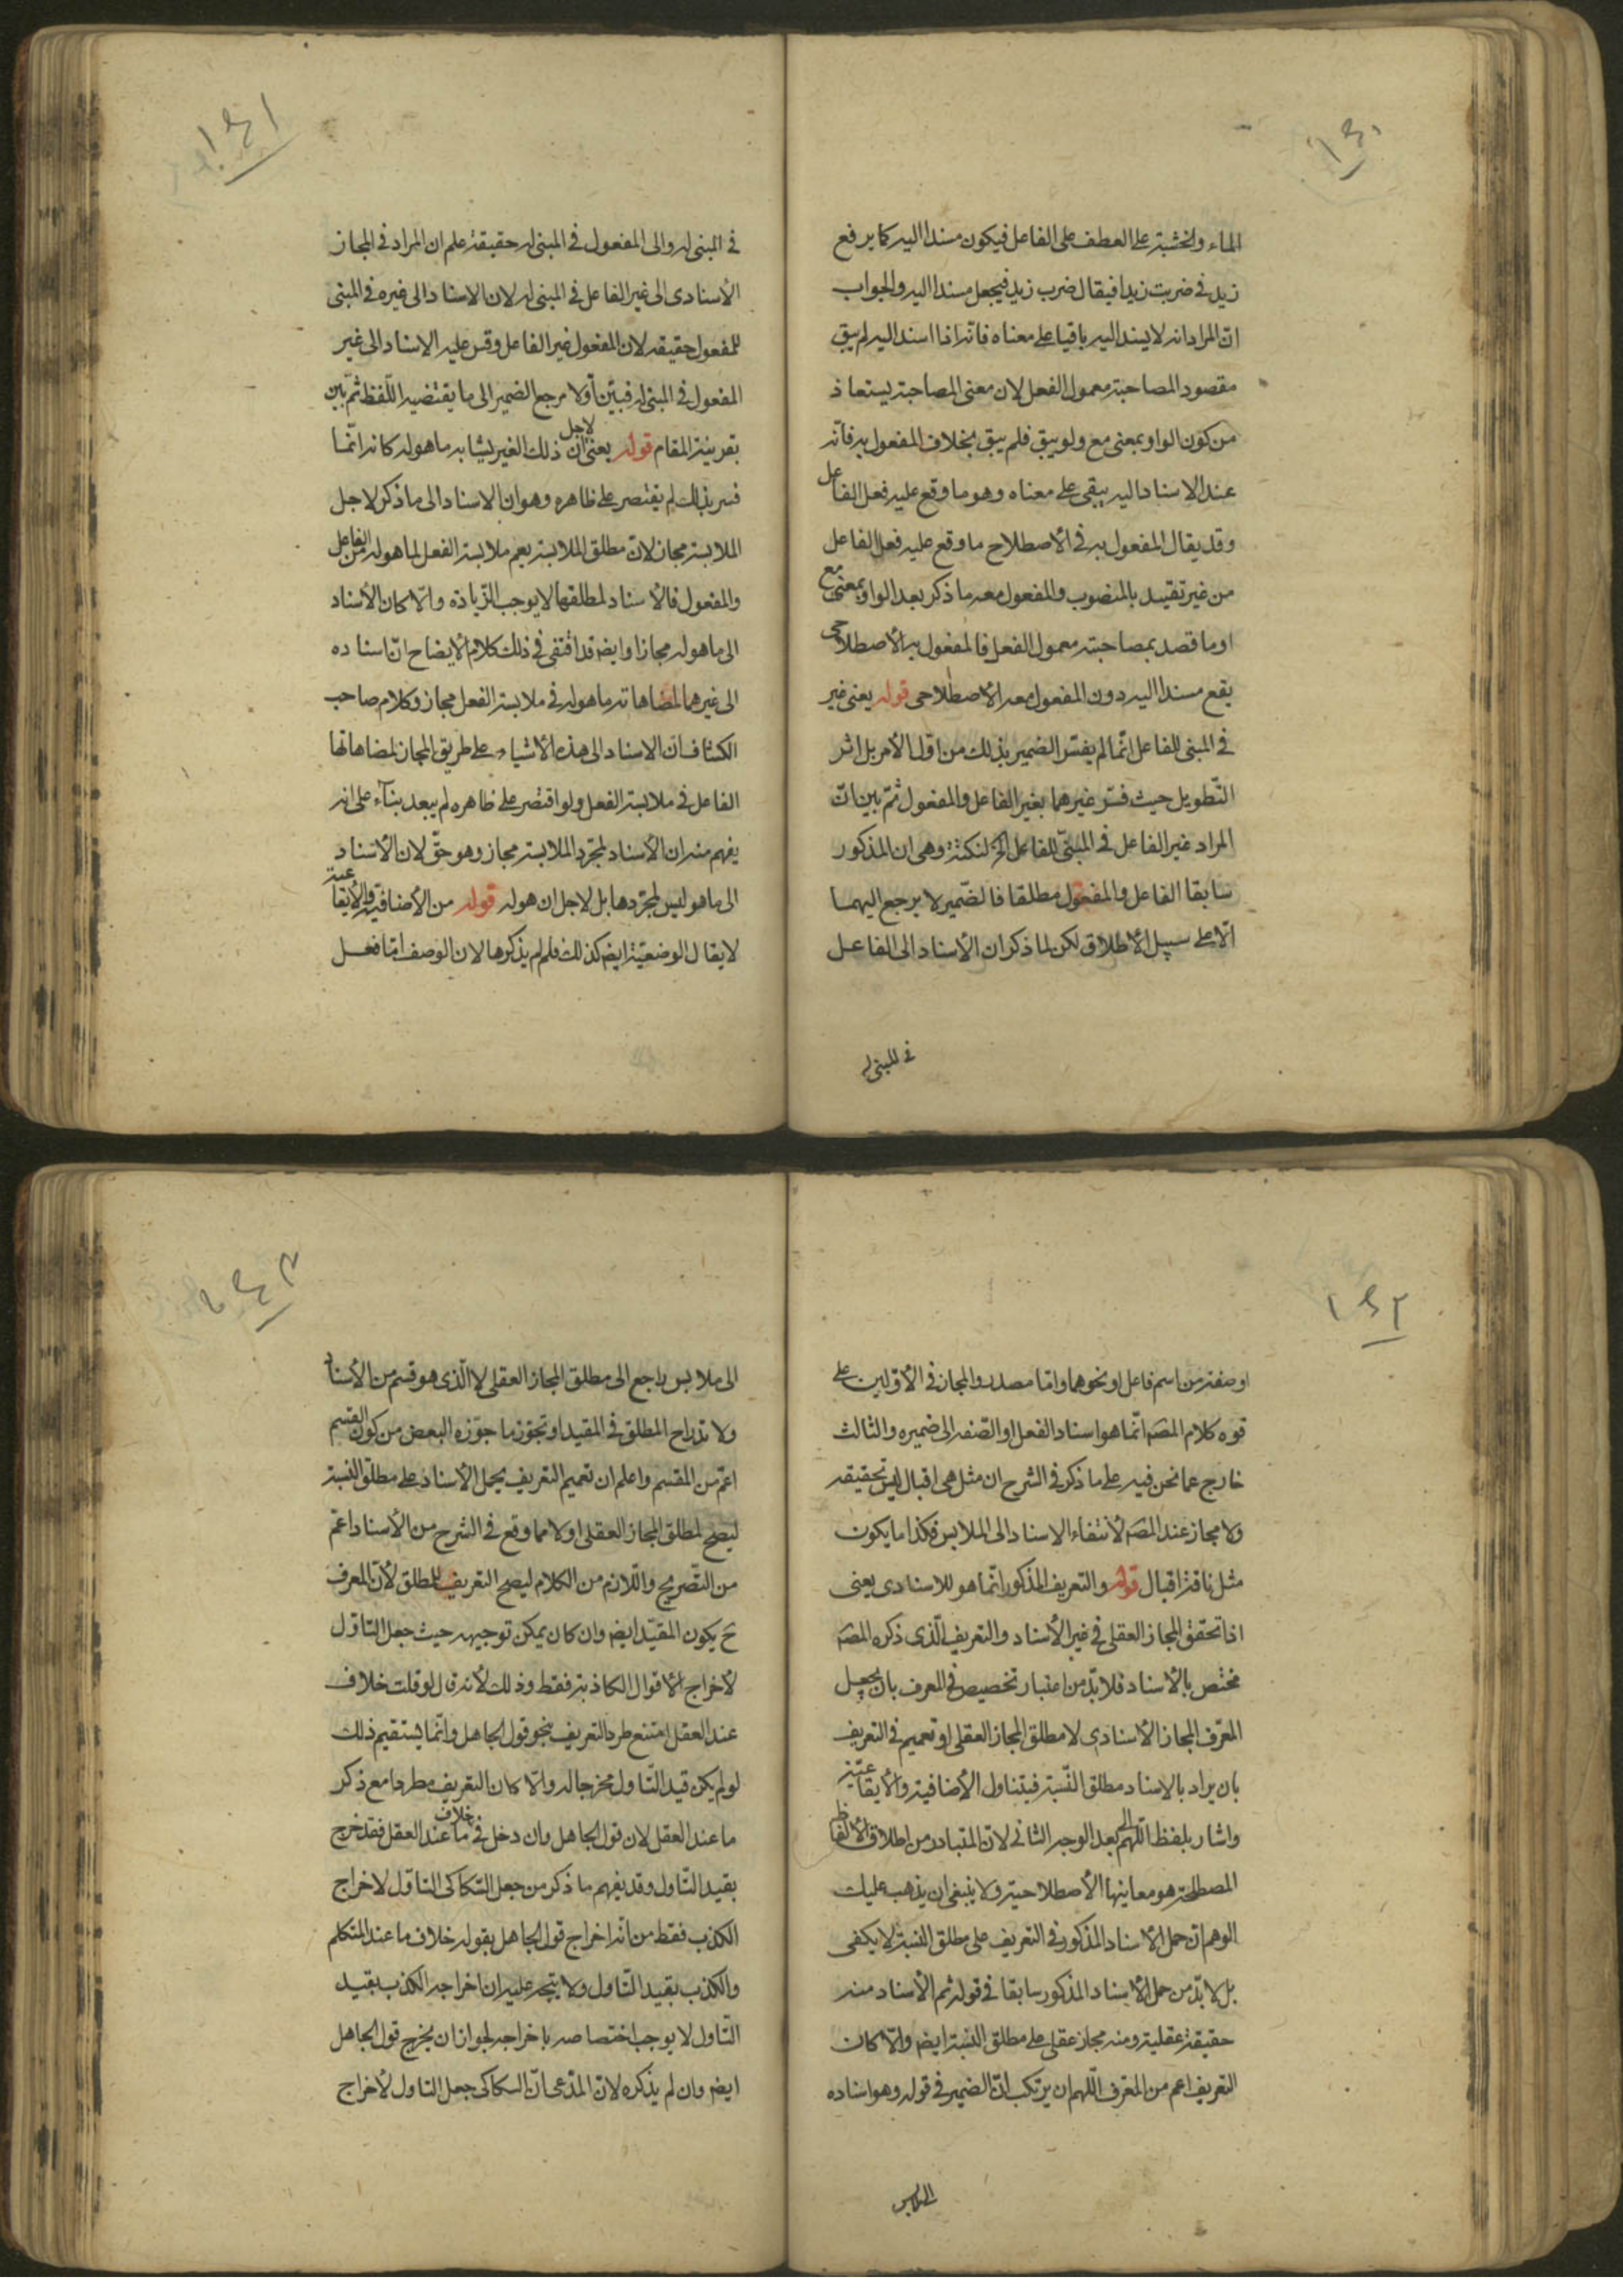 ١٤٠
الماء والخشبة على العطف على الفاعل فيكون مسندا اليه كما يرفع
زيد في ضربت زيدا فيقال ضرب زيد فيجعل مسندا اليه والجواب
انّ المراد انه لا يسند اليه باقيا على معناه فانّه اذا اسند اليه لم يبق
مقصود المصاحبة معمول الفعل لان معنى المصاحبة يستفاد
من كون الواو بمعنى مع ولو يبق فلم يبق بخلاف المفعول به فانّه
عند الاسناد اليه يبقى على معناه وهو ما وقع عليه فعل الفاعل
وقد يقال المفعول به في الأصطلاح ما وقع عليه فعل الفاعل
من غير تقييد بالمنصوب والمفعول معه ما ذكر بعد الواو بمعنى مع
او ما قصد بمصاحبته معمول الفعل فالمفعول به الأصطلاحى
يقع مسندا اليه دون المفعول معه الأصطلاحى قوله يعنى غير
في المبنى للفاعل انّما لم يفسّر الضمير بذلك من اوّل الأمر بل اثر
التّطويل حيث فسّر غيرهما بغير الفاعل والمفعول ثمّ بين انّ
المراد غير الفاعل في المبنىّ للفاعل الخ لنكتة وهى ان المذكور
سابقا الفاعل والمفعول مطلقا فالضّمير لا يرجع اليهما
الّا على سبيل الأطلاق لكن لما ذكر ان الأسناد الى الفاعل
في المبنى له
١٤١
في المبنى له والى المفعول في المبنى له حقيقة علم ان المراد في المجاز
الأسنادى الى غير الفاعل في المبنى له لان الاسناد الى غيره في المبنى
للمفعول حقيقه لان المفعول غير الفاعل وقس عليه الاسناد الى غير
المفعول في المبنى له فبيّن أوّلا مرجع الضمير الى ما يقتضيه اللّفظ ثمّ بين
بقرينة المقام قوله يعنى انّ لاجل ذلك الغير يشابه ما هو له كانه انّما
فسر بذلك لم يقتصر على ظاهره وهو ان الاسناد الى ما ذكر لاجل
الملابسة مجاز لانّ مطلق الملابسة يعم ملابسة الفعل لما هو له من الفاعل
والمفعول فالأسناد لمطلقها لا يوجب الزّيادة والّا كان الأسناد
الى ما هو له مجازا وايضه قد اقتفى في ذلك كلام الأيضاح انّ اسناده
الى غيرهما لمضاهاته ما هو له في ملابسة الفعل مجاز وكلام صاحب
الكشاف ان الاسناد الى هذه الأشياء على طريق المجاز لمضاهاتها
الفاعل في ملابسة الفعل ولو اقتصر على ظاهره لم يبعد بنآء على انه
يفهم منه ان الأسناد لمجرّد الملابسة مجاز وهو حقّ لان الأسناد
الى ما هو ليس لمجرّدها بل لاجل ان هو له قوله من الأضافيّة والأيقاعية
لا يقال الوضعيّة ايضه كذلك فلم لم يذكرها لان الوصف امّا فعل
١٤٢
او صفة من اسم فاعل او نحوهما وامّا مصدر والمجاز في الأوّلين على
قوه كلام المصّه انّما هو اسناد الفعل او الصّفه الى ضميره والثالث
خارج عما نحن فيه على ما ذكر في الشرح ان مثل هى اقبال ليس بحقيقه
ولا مجاز عند المصّه لأنتفاء الاسناد الى الملابس فكذا ما يكون
مثل ناقة اقبال قوله والتعريف المذكور انّما هو للاسنادى يعنى
اذا تحقق المجاز العقلى في غير الأسناد والتعريف الّذى ذكره المصّه
مختص بالأسناد فلا بدّ من اعتبار تخصيص في المعرف بان يجعل
المعّرف المجاز الأسنادى لا مطلق المجاز العقلى او تعميم في التعريف
بان يراد بالاسناد مطلق النّسبة فيتناول الأضافية والأيقاعيّة
واشار بلفظ اللّهم الى بعد الوجه الثانى لانّ المتبادر من اطلاق الألفاظ
المصطلحة هو معاينها الأصطلاحية ولا ينبغى ان يذهب عليك
الوهم انّ حمل الأسناد المذكور في التعريف على مطلق النسبة لا يكفى
بل لا بدّ من حمل الأسناد المذكور سابقا في قوله ثم الأسناد منه
حقيقة عقلية ومنه مجاز عقلى على مطلق النسبة ايضه والّا كان
التعريف اعم من المعّرف اللّهم ان يرتكب انّ الضمير في قوله وهو اسناده
الى ملابس
١٤٣
الى ملابس راجع الى مطلق المجاز العقلى لا الّذى هو قسم من الأسناد
ولا تدراج المطلق في المقيد او تجوّز ما جوّزه البعض من كون القسم
اعمّ من المقسم واعلم ان تعميم التعريف بحمل الأسناد على مطلق النسبة
ليصح لمطلق المجاز العقلى اولا مما وقع في الشرح من الأسناد اعمّ
من التّصريح واللّازم من الكلام ليصح التعريف للمطلق لأنّ المعرف
حَ يكون المقيّد ايضه وان كان يمكن توجيهه حيث جعل التأوّل
لأخراج الأقوال الكاذبة فقط وذلك لأنه قال لو قلت خلاف
عند العقل امتنع طرد التعريف بنحو قول الجاهل وانّما يستقيم ذلك
لو لم يكن قيد التّاول مخرجا له والّا كان التعريف مطردا مع ذكر
ما عند العقل لان قول الجاهل وان دخل في خلاف ما عند العقل فقد خرج
بقيد التّاول وقد يفهم ما ذكر من جعل السّكاكى التاوّل لاخراج
الكذب فقط من انّه اخراج قول الجاهل بقوله خلاف ما عند المتكلم
والكذب بقيد التّاول ولا يتجه عليه ان اخراجه الكذب بقيد
التّاول لا يوجب اختصاصه باخراجه لجواز ان يخرج قول الجاهل
ايضه وان لم يذكره لانّ المدّعى انّ السكاكى جعل التاول لأخراج